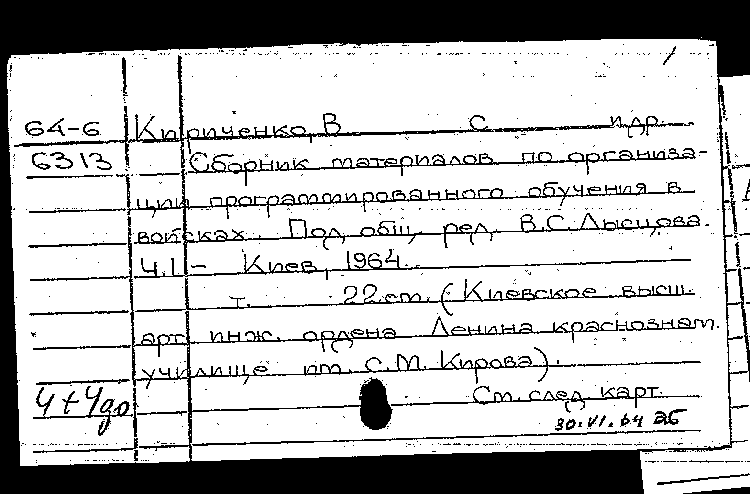 64-6 Кириченко, В С и др.
6313 Сборник материалов по организа-
ции программированного обучения в
войсках. Под общ. ред. В.С. Лысцова.
Ч.I - Киев, 1964.
т. 22 см. (Киевское высш.
арт. инж. ордена Ленина краснознам.
училище им. С.М. Кирова).
См. след. карт.
30.VI.64